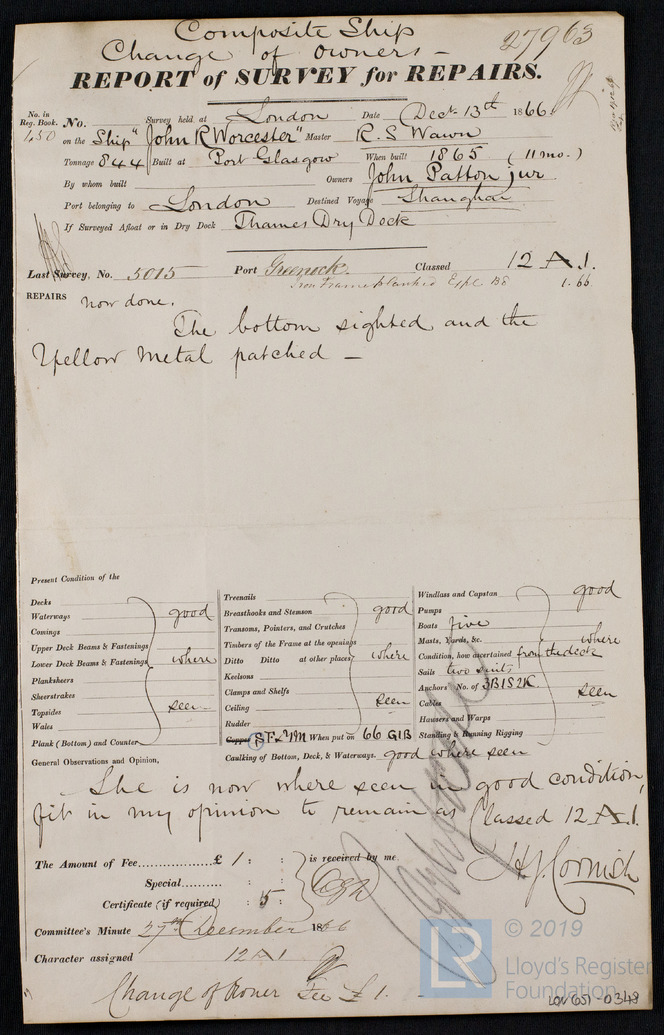 Composite Ship
Change of Owners —
27963
REPORT of SURVEY for REPAIRS.
No. in Reg. Book.
150
No. Survey held at London Date Decr 13th 1866.
on the Ship "John R Worcester" Master R. S Wawn
Tonnage 844 Built at Port Glasgow When built 1865 (11 mo.)
By whom built Owners John Patton jur
Port belonging to London Destined Voyage Shanghai
If Surveyed Afloat or in Dry Dock Thames Dry Dock
Last Survey, No. 5015 Port Greenock. Classed 12 A 1.
Iron Frame planked Expl B8 1.66
REPAIRS now done.
The bottom sighted and the
Yellow Metal patched —
Present Condition of the
Decks
Waterways
Comings
Upper Deck Beams & Fastenings
Lower Deck Beams & Fastenings
Planksheers
Sheerstrakes
Topsides
Wales
Plank (Bottom) and Counter
good
where
seen
Treenails
Breasthooks and Stemson
Transoms, Pointers, and Crutches
Timbers of the Frame at the openings
Ditto Ditto at other places
Keelsons
Clamps and Shelfs
Ceiling
Rudder
good
where
seen
Copper When put on 66 GIB
Caulking of Bottom, Deck, & Waterways. good where seen
Windlass and Capstan
Pumps
Boats five
Masts, Yards, &c.
Condition, how ascertained from the deck
Sails two suits
Anchors No. of 3B1S2K.
Cables
Hawsers and Warps
Standing & Running Rigging
good
where
seen
General Observations and Opinion,
She is now where seen in good condition,
fit in my opinion to remain as Classed 12 A.1.
The Amount of Fee £ 1 : : is received by me
Special : :
Certificate (if required) : 5 :
H J Cornish
Committee's Minute 27th December 1866
Character assigned 12 A 1
Change of Owner Fee £ 1.
© 2019
LR
Lloyd's Register
Foundation
LON 651-0348